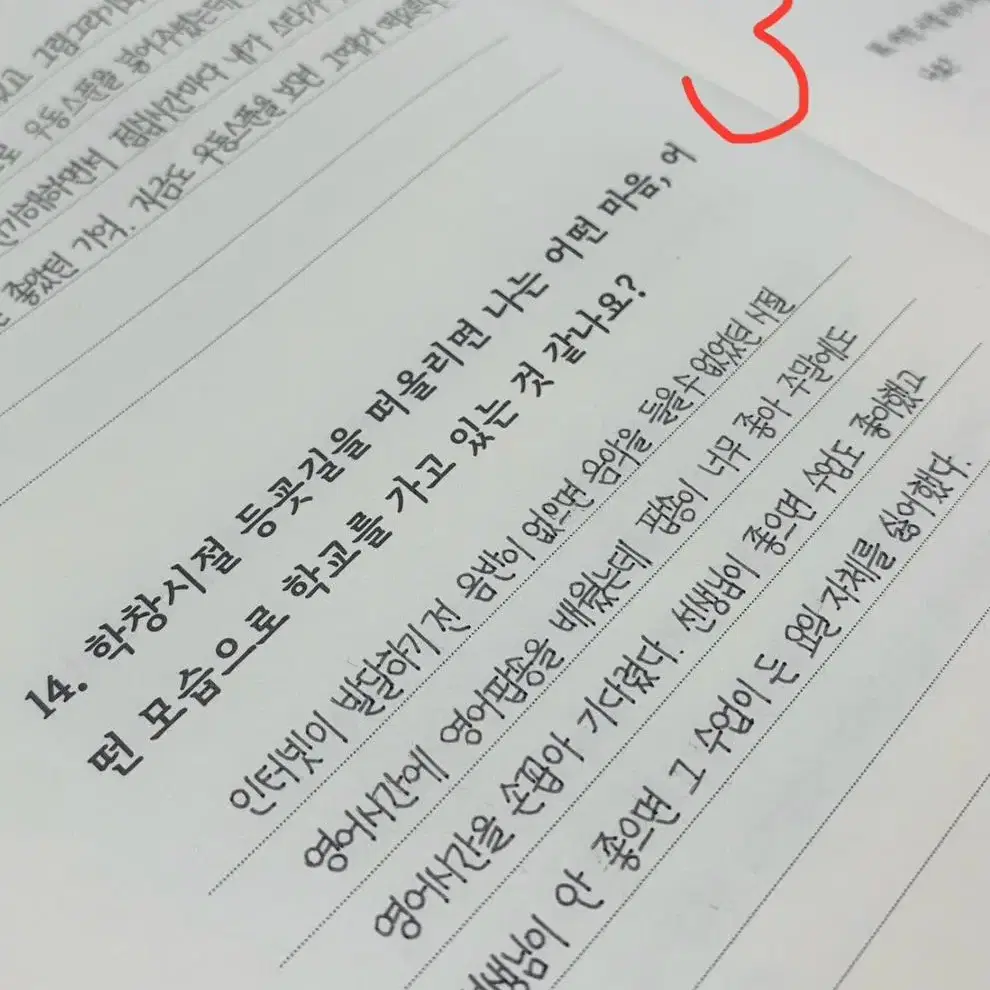 그림그리기
우동스푼을 넣어주셨는데
신기해하면서 점심시간마다 내가 스타가
좋았던 기억. 지금도 우동스푼을 보면 그때가
3
14. 학창시절 등굣길을 떠올리면 나는 어떤 마음, 어
떤 모습으로 학교를 가고 있는 것 같나요?
인터넷이 발달하기 전 음반이 없으면 음악을 들을수 없었던 시절
영어시간에 영어팝송을 배웠는데 팝송이 너무 좋아 주말에도
영어시간을 손꼽아 기다렸다. 선생님이 좋으면 수업도 좋아했고
선생님이 안 좋으면 그 수업이 든 요일 자체를 싫어했다.